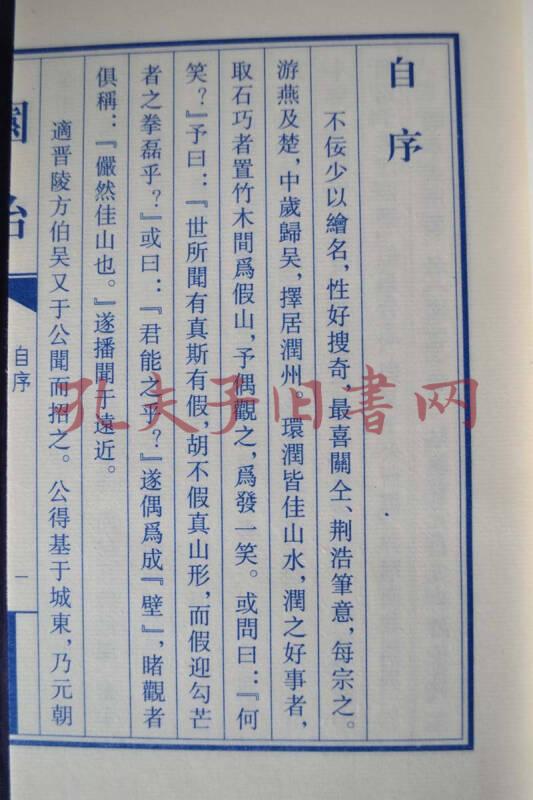 自序
不佞少以繪名，性好搜奇，最喜關仝、荆浩筆意，每宗之。
游燕及楚，中歲歸吴，擇居潤州。環潤皆佳山水，潤之好事者，
取石巧者置竹木間爲假山，予偶觀之，爲發一笑。或問曰：『何
笑？』予曰：『世所聞有真斯有假，胡不假真山形，而假迎勾芒
者之拳磊乎？』或曰：『君能之乎？』遂偶爲成『壁』，睹觀者
俱稱：『儼然佳山也。』遂播聞于遠近。
適晋陵方伯吴又于公聞而招之。公得基于城東，乃元朝
園冶
自序
一
孔夫子旧书网